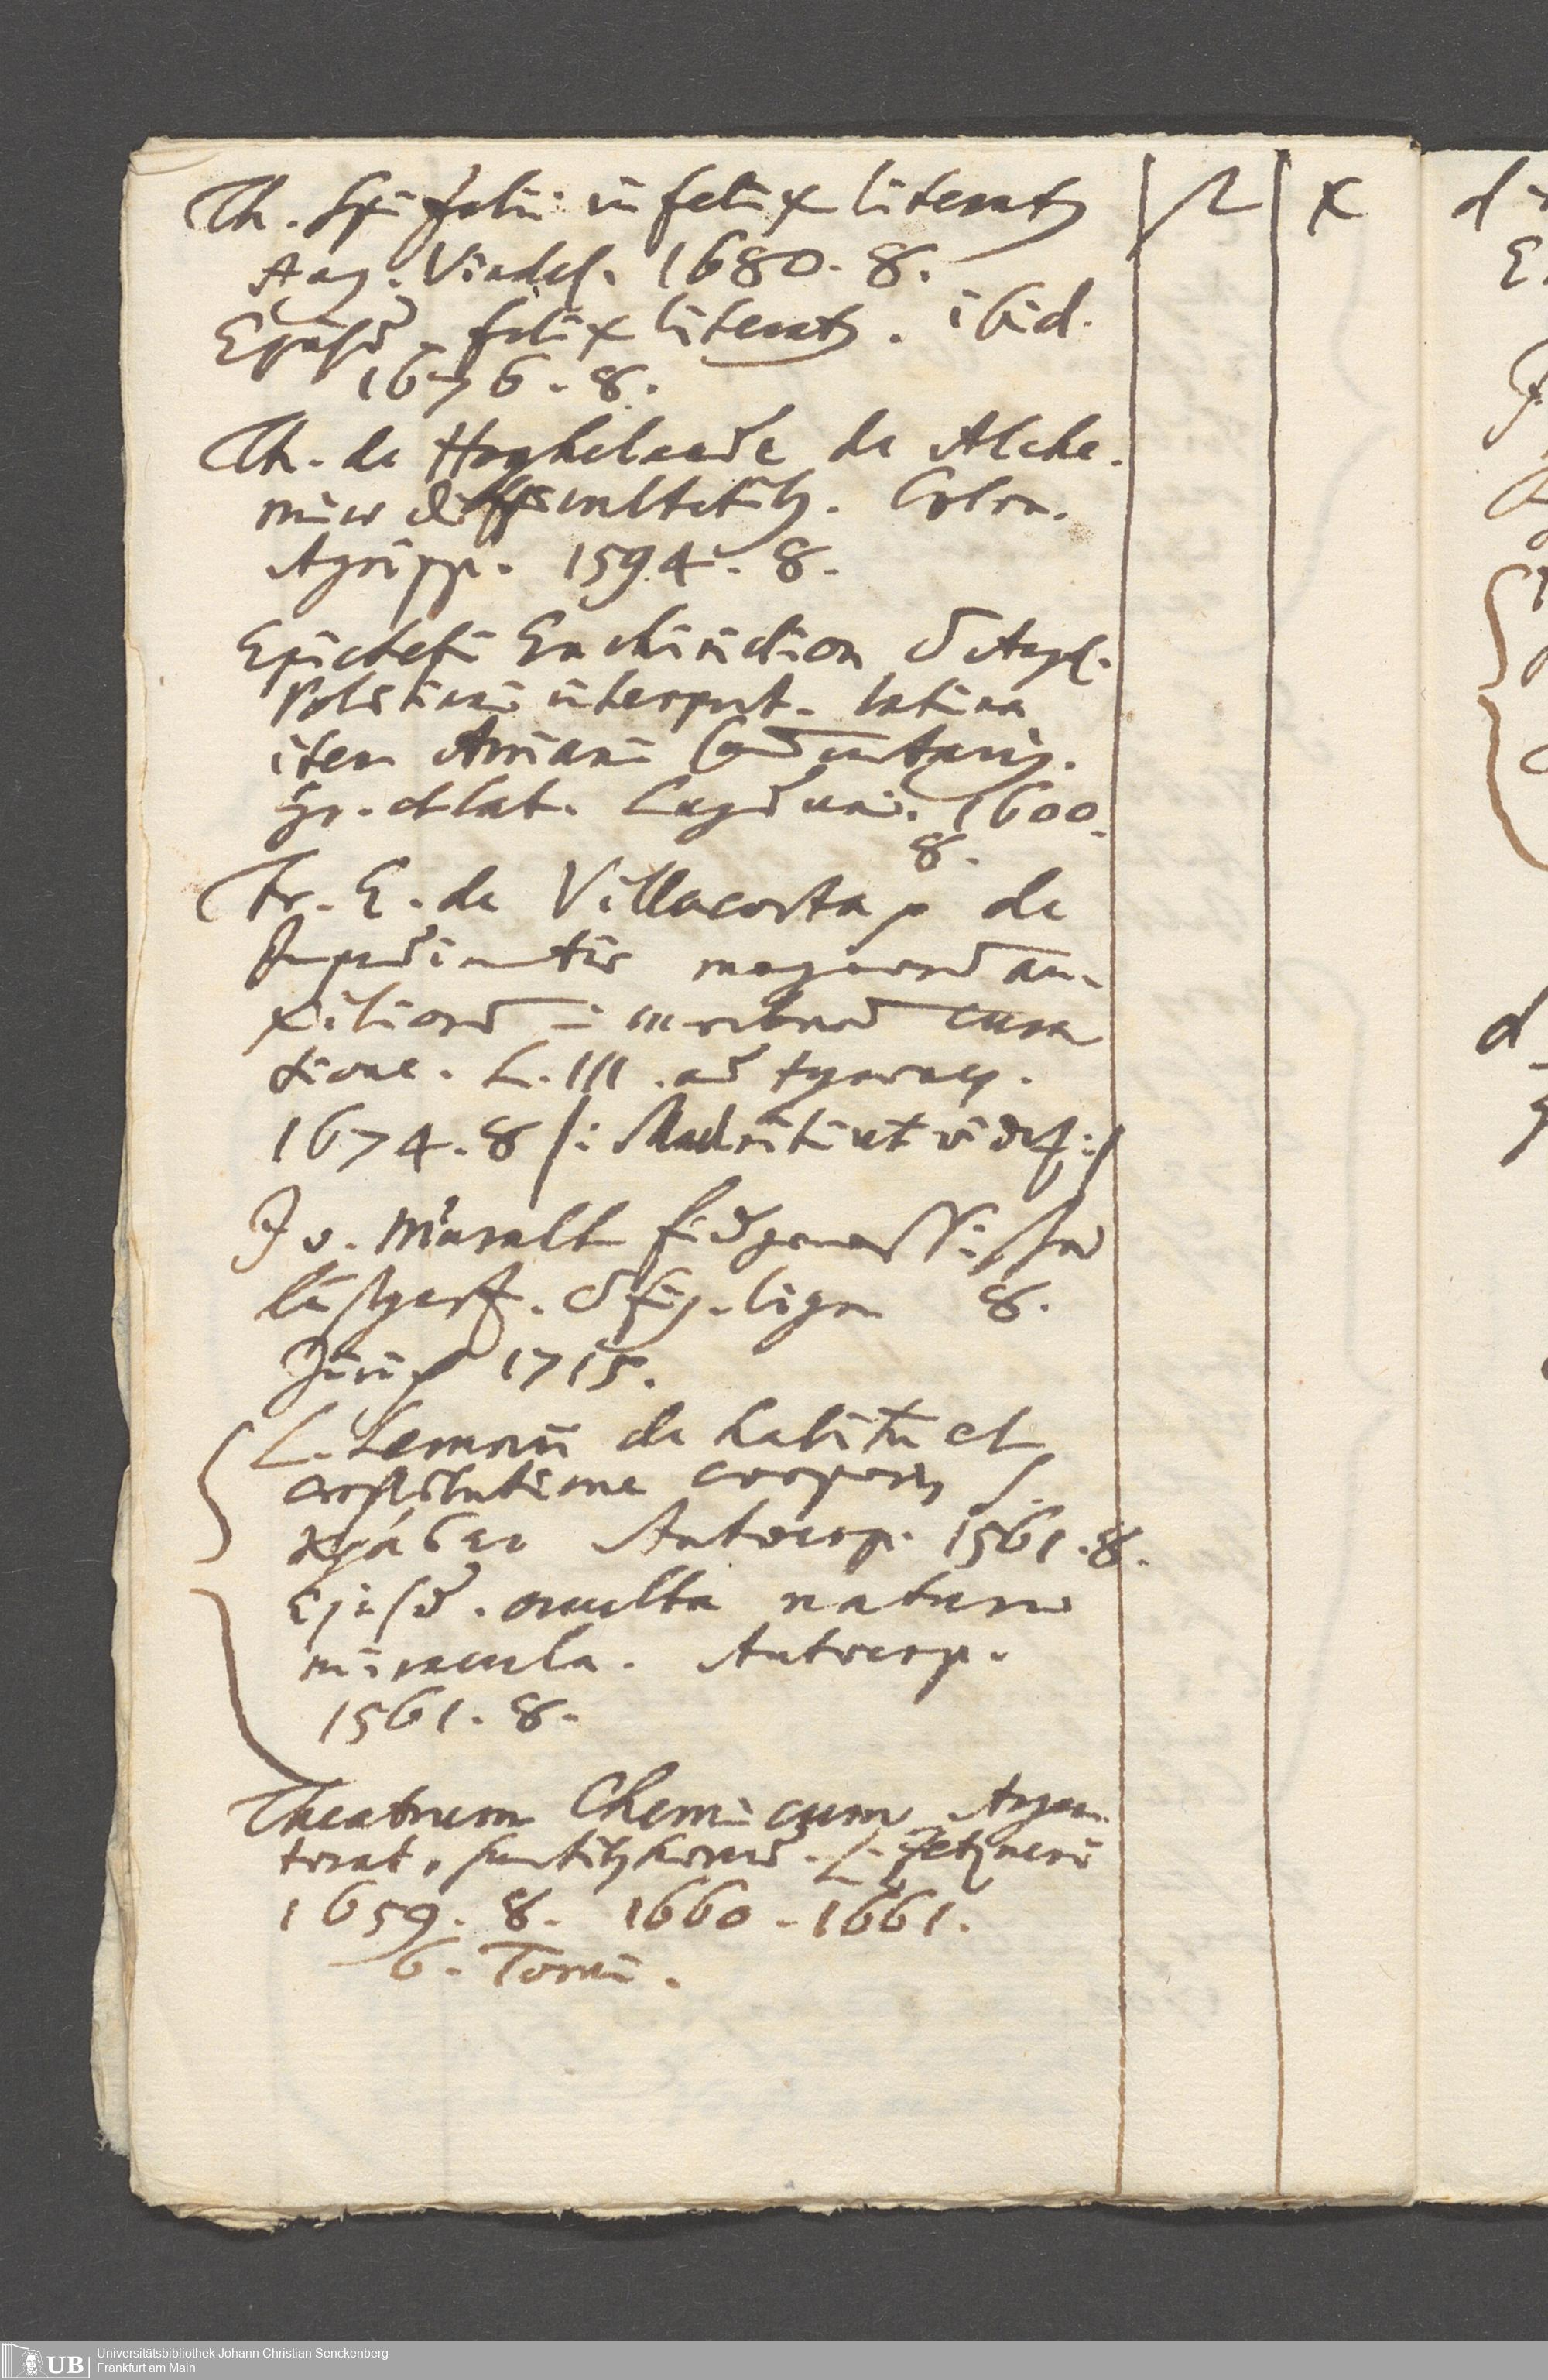 Th. Spizelii infelix literatus
Aug. Vindel. 1680. 8.
Ejusd. felix literatus. ibid.
1676. 8.
Th. de Hoghelande de Alche-
miae difficultatibus. Colon.
Agripp. 1594. 8.
Epicteti Enchiridion c. Angel.
Politiani interpret. latina
item Arriani Commentarius.
gr. et lat. Lugduni. 1600.
8.
Fr. E. de Villacorta de
magnorum au-
xiliorum in morborum cura
tione. L. III. ad tyrones.
1674. 8 /: Madriti ut videt :/
J v. Muralt Eidgenossischer
lustgart. c. fig. lign 8.
Zürich 1715.
L. Lemnii de habitu et
constitutione corporis s.
κράσει Antverp. 1561. 8.
Ejusd. occulta naturae
miracula. Antverp.
1561. 8.
Theatrum Chemicum Argen
torat. sumtibus haered. L. Zetzneri
1659. 8. 1660. 1661.
6. Tomi.
x
Universitätsbibliothek Johann Christian Senckenberg
Frankfurt am Main
UB